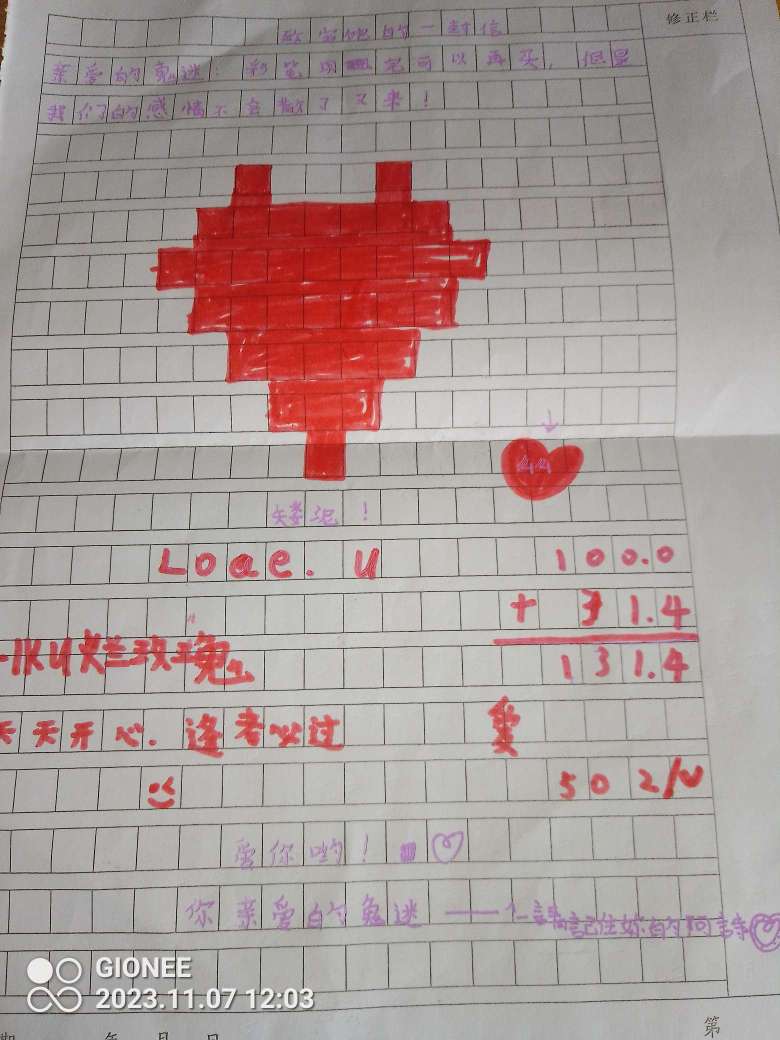 修正栏
的一封信
亲爱的兔迷：彩笔用 完可以再买，但是
我们的感情不会散了又来！
44
矮泥！
Loae. u 100.0
+ 31.4
131.4
玫瑰兔
天天开心. 逢考必过 爱
502/w
爱你哟！
你亲爱的兔迷——
记住妳的阿
第
年 月 日
GIONEE
2023.11.07 12:03